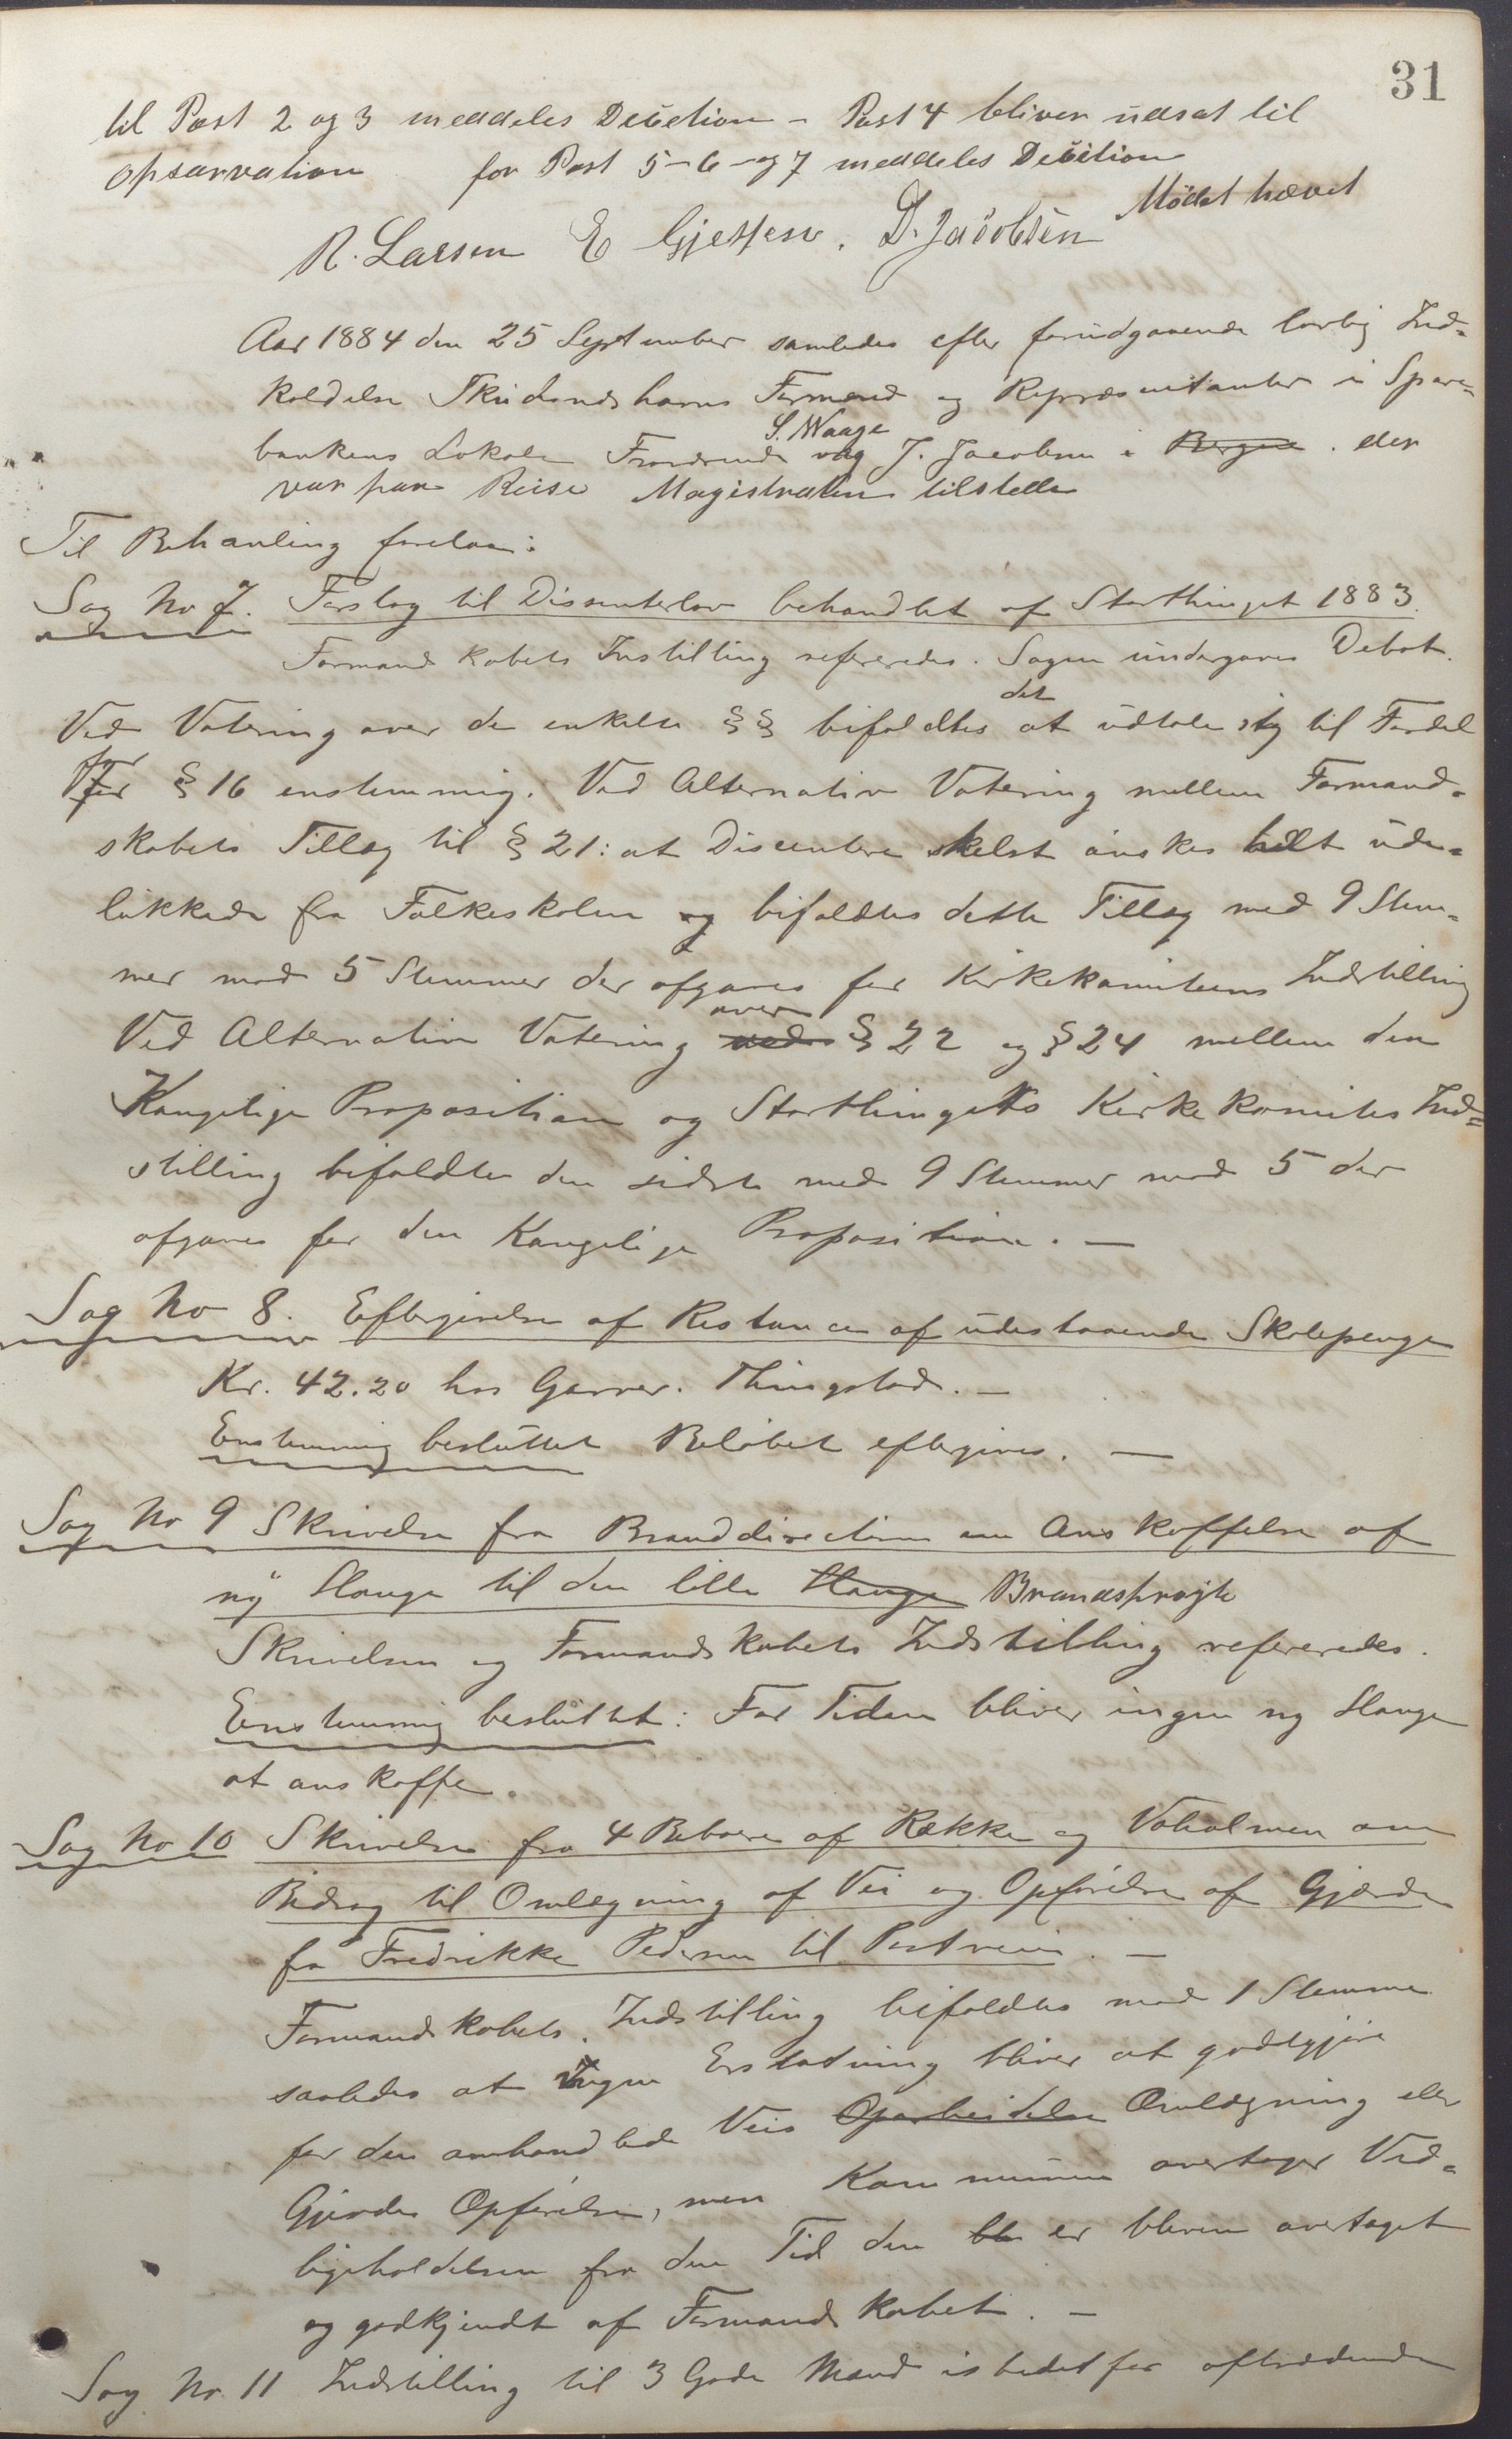 31
til Post 2 og 3 meddeles Decition – Post 4 bliver udsat til
opsarvation for Post 5-6-og 7 meddeles Decition
Mødet hævet
R. Larsen E Gjessen. D. Jacobsen
Aar 1884 den 25 September samledes efter forudgaaende lovlig Ind=
kaldelse Skudesneshavns Formænd og Repræsentanter i Spare=
bankens Lokale Fraværende S. Waage og J. Jacobsen i Bergen. der
var paa Reise Magistraten tilstede
Til Behanling forelaa:
Sag No 7. Forslag til Dissenterlov behandlet af Storthinget 1883.
Formandskabets Instilling refereredes. Sagen undergaves Debat.
Ved Votering over de enkelte §§ bifaldtes det at udtale sig til Fordel
for § 16 enstemmig. Ved Alternativ Votering mellem Formand=
skabets Tillæg til § 21: at Discentere skelst ønskes helt ude=
lukkede fra Folkeskolen og bifaldtes dette Tillæg med 9 Stem=
mer mod 5 Stemmer der afgaves for Kirkekomiteens Indstilling
Ved Alternativ Votering over § 22 og § 24 mellem den
Kongelige Proposition og Storthingets Kirkekomites Ind=
stilling bifaldtes den sidste med 9 Stemmer mod 5 der
afgaves for den Kongelige Proposition. —
Sag No 8. Eftergivelse af Restance af udestaaende Skolepenge
Kr. 42.20 hos Garver. Thingstad. —
Enstemmig besluttet Beløbet eftergives. —
Sag No 9 Skrivelse fra Branddirectionen om Anskaffelse af
ny Slange til den lille Slange Brandsprøjte
Skrivelsen og Formandskabets Indstilling refereredes.
Enstemmig besluttet: For Tiden bliver ingen ny Slange
at anskaffe.
Sag No 10 Skrivelse fra 4 Beboere af Række og Vaholmen om
Bidrag til Omlægning af Vei og Opførelse af Gjærde
fra Fredrikke Pedersen til Postveien. —
Formandskabets Indstilling bifaldtes mod 1 Stemme
saaledes at Ingen Erstatning bliver at godtgjøre
for den omhandlede Veis Oparbeidelse Omlægning eller
Gjerdes Opførelse, men Kommunen overtager Ved=
ligeholdelsen fra den Tid den bl er bleven overtaget
og godkjendt af Formandskabet. —
Sag No 11 Indstilling til 3 Gode Mænd istedetfor aftrædende